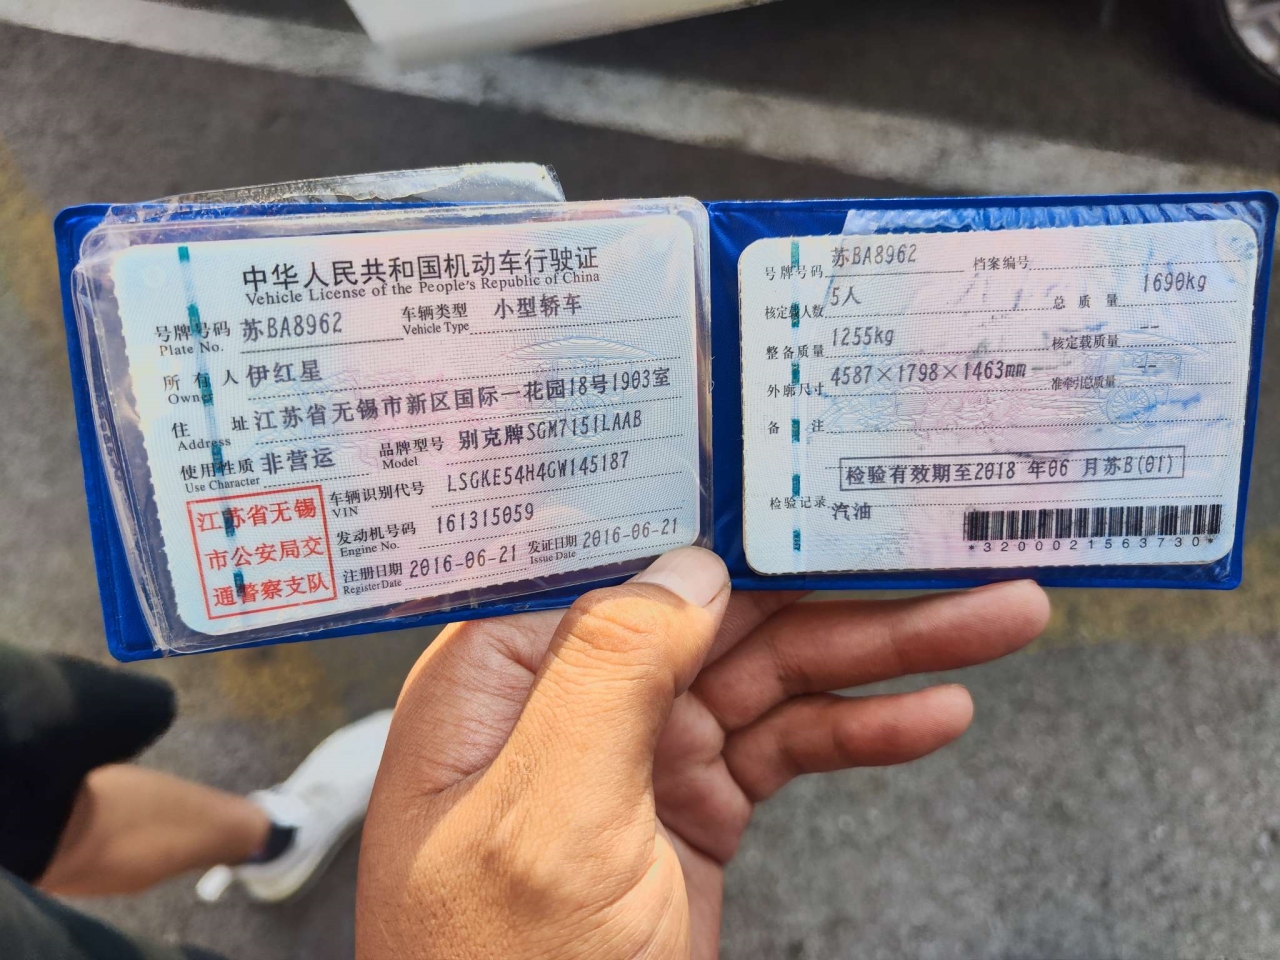 中华人民共和国机动车行驶证
Vehicle License of the People's Republic of China
号牌号码 苏BA8962 车辆类型 小型轿车
Plate No. Vehicle Type
所有人 伊红星
Owner
住址 江苏省无锡市新区国际一花园18号1903室
Address
使用性质 非营运 品牌型号 别克牌SGM7151LAAB
Use Character Model
江苏省无锡
市公安局交
通警察支队
车辆识别代号 LSGKE54H4GW145187
VIN
发动机号码 161315059
Engine No.
注册日期 2016-06-21 发证日期 2016-06-21
Register Date Issue Date
号牌号码 苏BA8962 档案编号
核定载人数 5人 总质量 1690kg
整备质量 1255kg 核定载质量 --
外廓尺寸 4587×1798×1463mm 准牵引总质量 --
备注
检验有效期至2018 年06 月苏B(01)
检验记录
汽油
*3200021563730*